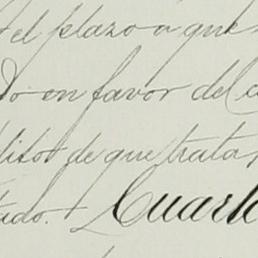 el plazo a que
do en favor del
ditos de que trata,
tado. + Cuarto